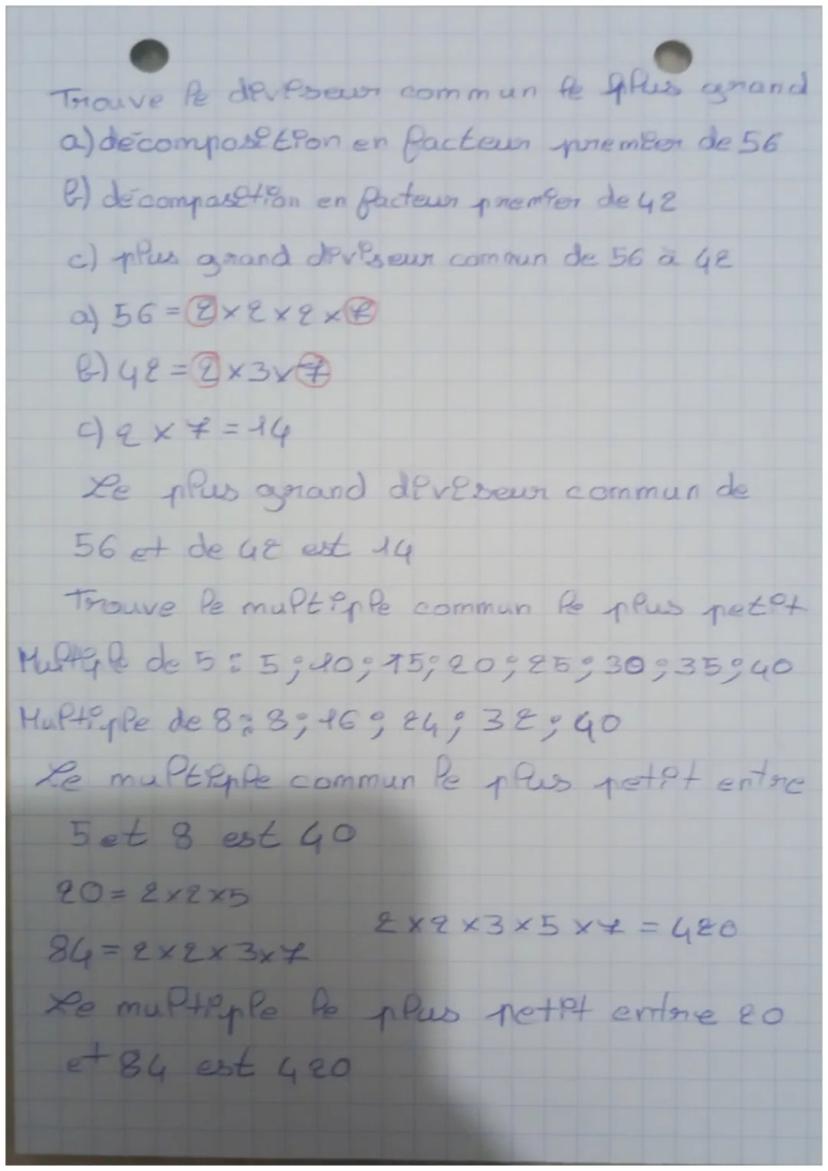 Trouve le deveseur commun le plus grand
a) décomposition en facteur premier de 56
b) décomposition en facteur premier de 42
c) plus grand diviseur commun de 56 à 42
a) 56 = 2 × 2 × 2 × 7
b) 42 = 2 × 3 × 7
c) 2 × 7 = 14
Le plus grand diveseur commun de
56 et de 42 est 14
Trouve le multiple commun le plus petit
Multiple de 5 : 5 ; 10 ; 15 ; 20 ; 25 ; 30 ; 35 ; 40
Multiple de 8 : 8 ; 16 ; 24 ; 32 ; 40
Le multiple commun le plus petit entre
5 et 8 est 40
20 = 2 × 2 × 5
2 × 2 × 3 × 5 × 7 = 420
84 = 2 × 2 × 3 × 7
Le multiple le plus petit entre 20
et 84 est 420